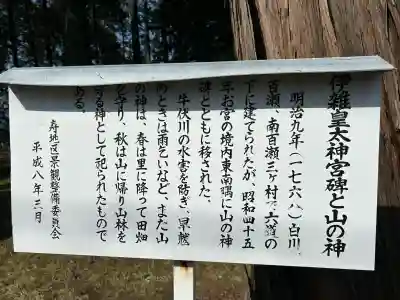 伊雑皇大神宮碑と山の神
明治九年(一七六八)白川、
百瀬、南百瀬三ヶ村
下に建てられたが、昭和四十五
年お宮の境内東南隅に山の神
碑とともに移された。
牛伏川の水害を防ぎ、旱魃
のときは雨乞いなど、また山
の神は、春は里に降って田畑
を守り、秋は山に帰り山林を
守る神として祀られたもので
ある。
寿地区景観整備委員会
平成八年三月